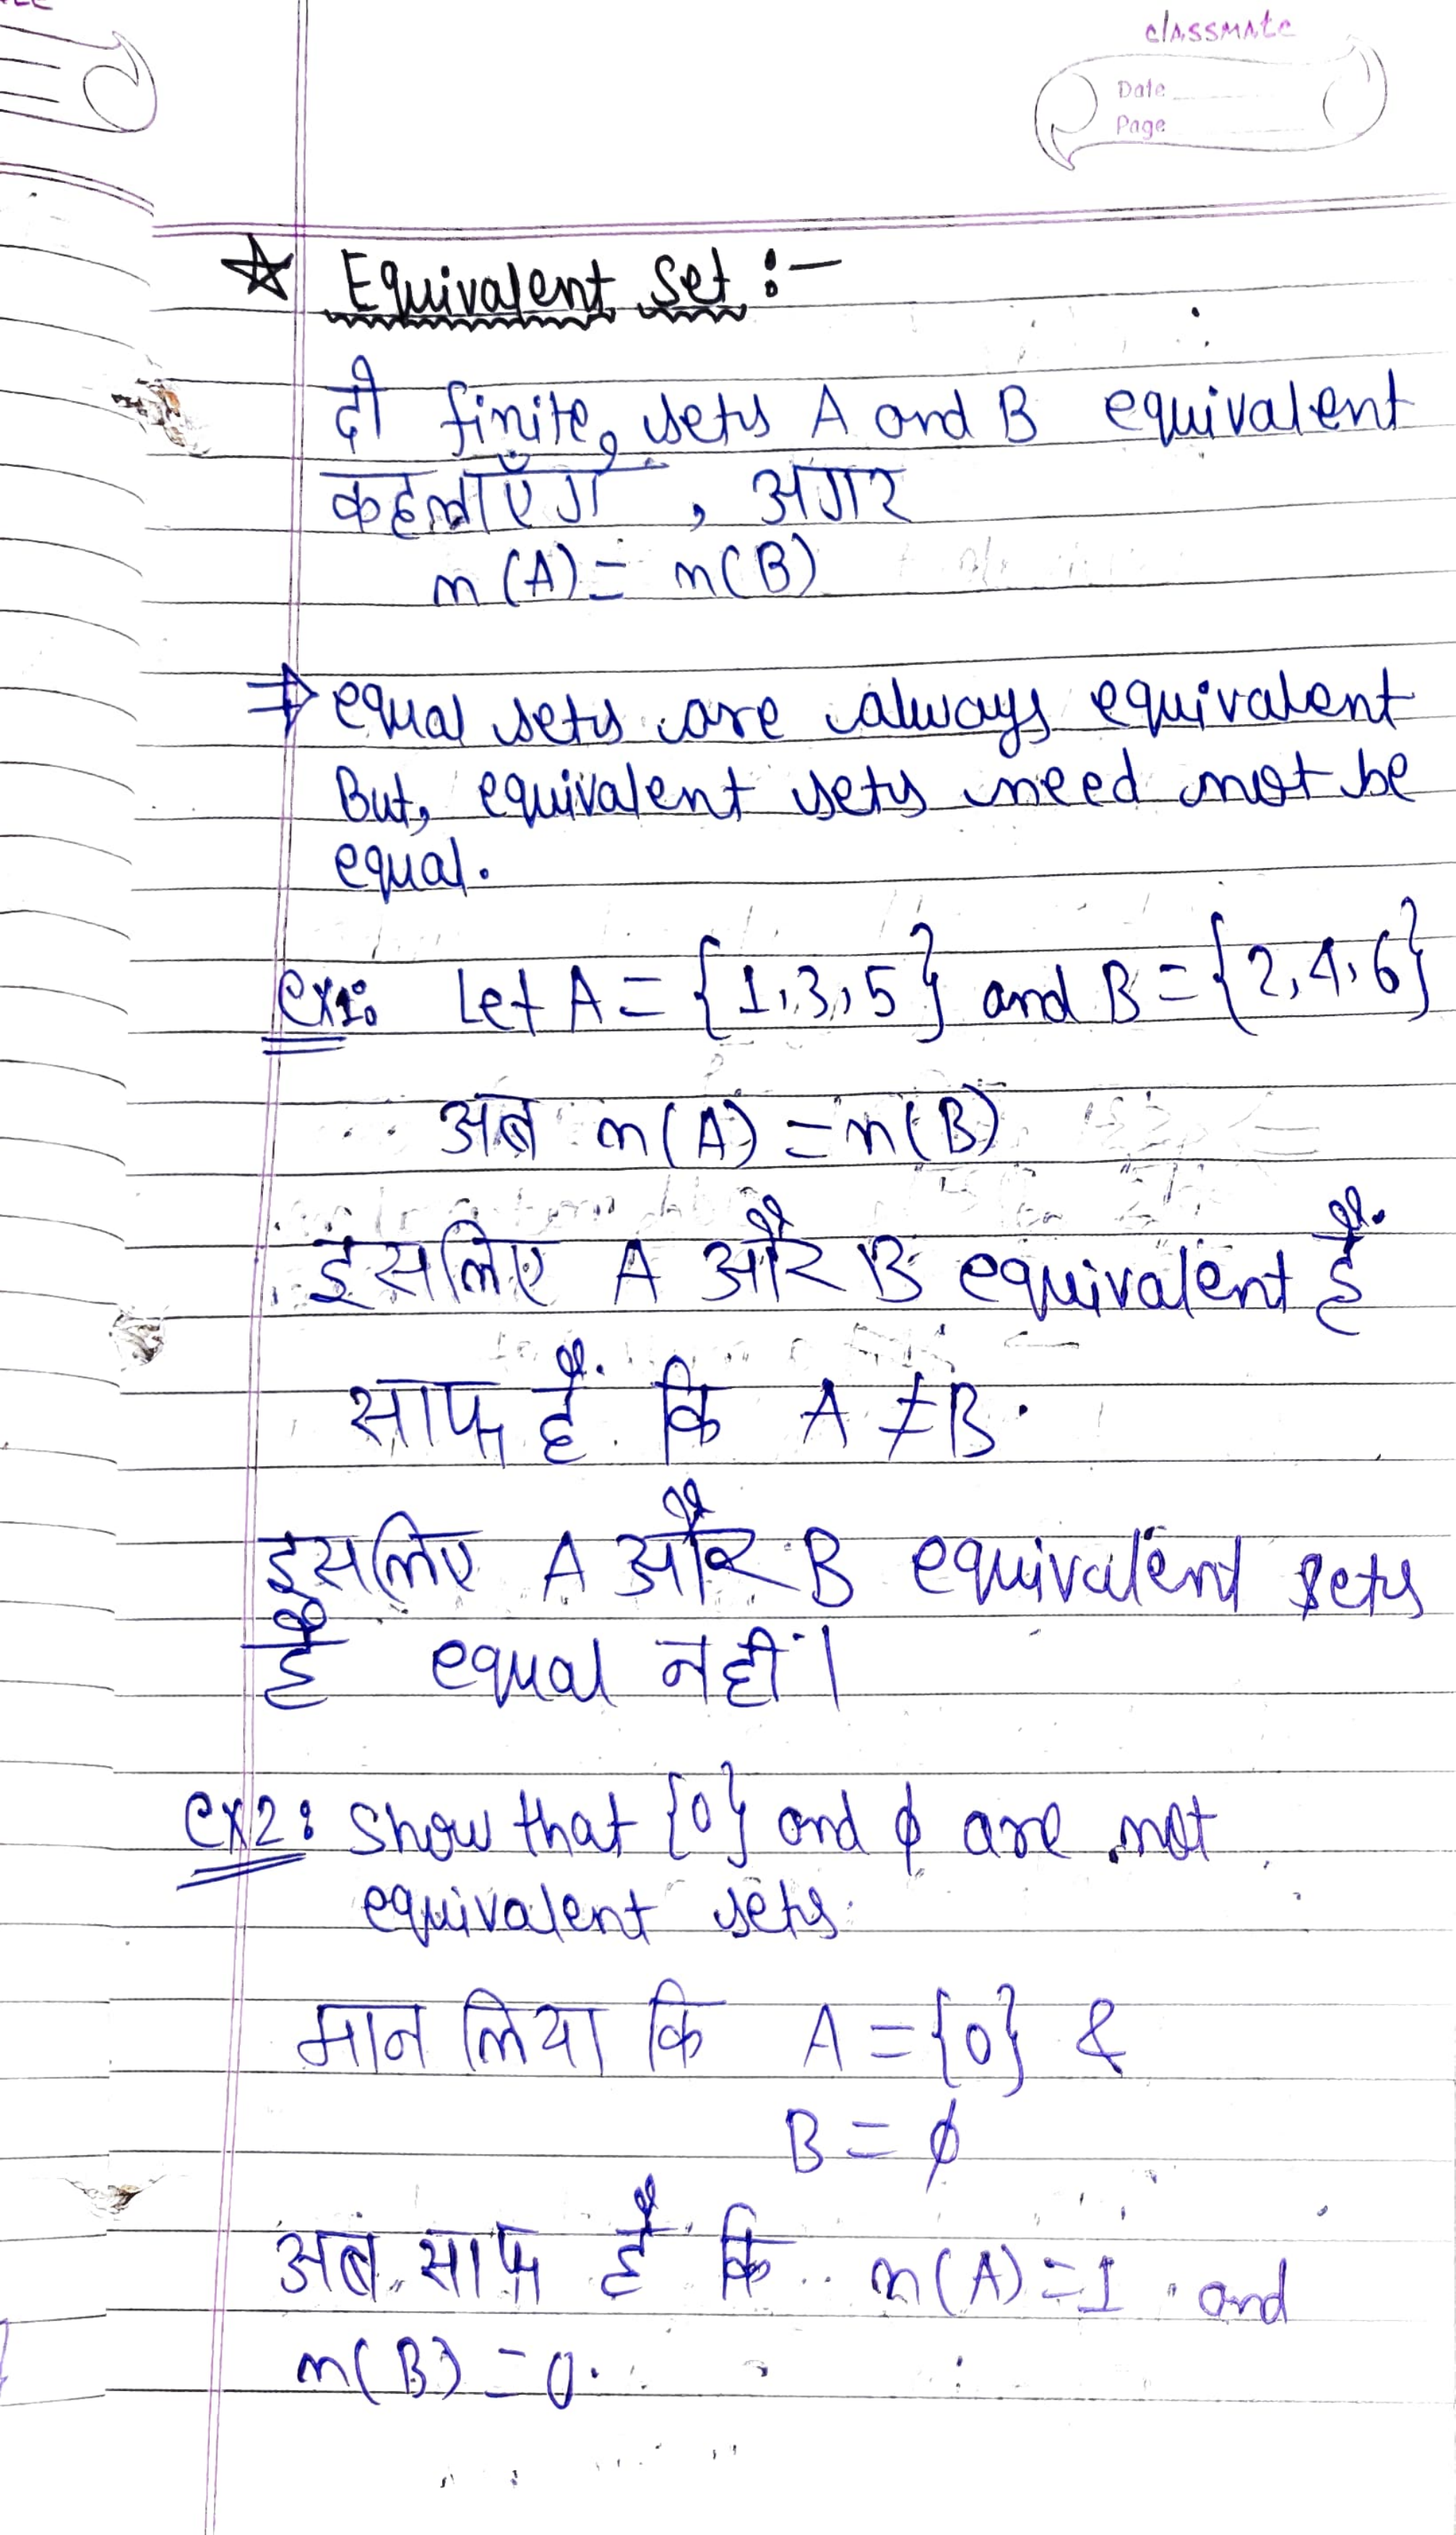 classmate
Date
Page
☆ Equivalent Set :-
दो finite sets A and B equivalent
कहलाएँगे, अगर
n(A) = n(B)
⇒ equal sets are always equivalent
But, equivalent sets need not be
equal.
ex1: Let A = {1,3,5} and B = {2,4,6}
अब n(A) = n(B)
इसलिए A और B equivalent हैं.
साफ हैं. कि A ≠ B.
इसलिए A और B equivalent sets
है equal नहीं।
ex2: Show that {0} and ϕ are not
equivalent sets.
मान लिया कि A = {0} &
B = ϕ
अब साफ है कि n(A) = 1 and
n(B) = 0.